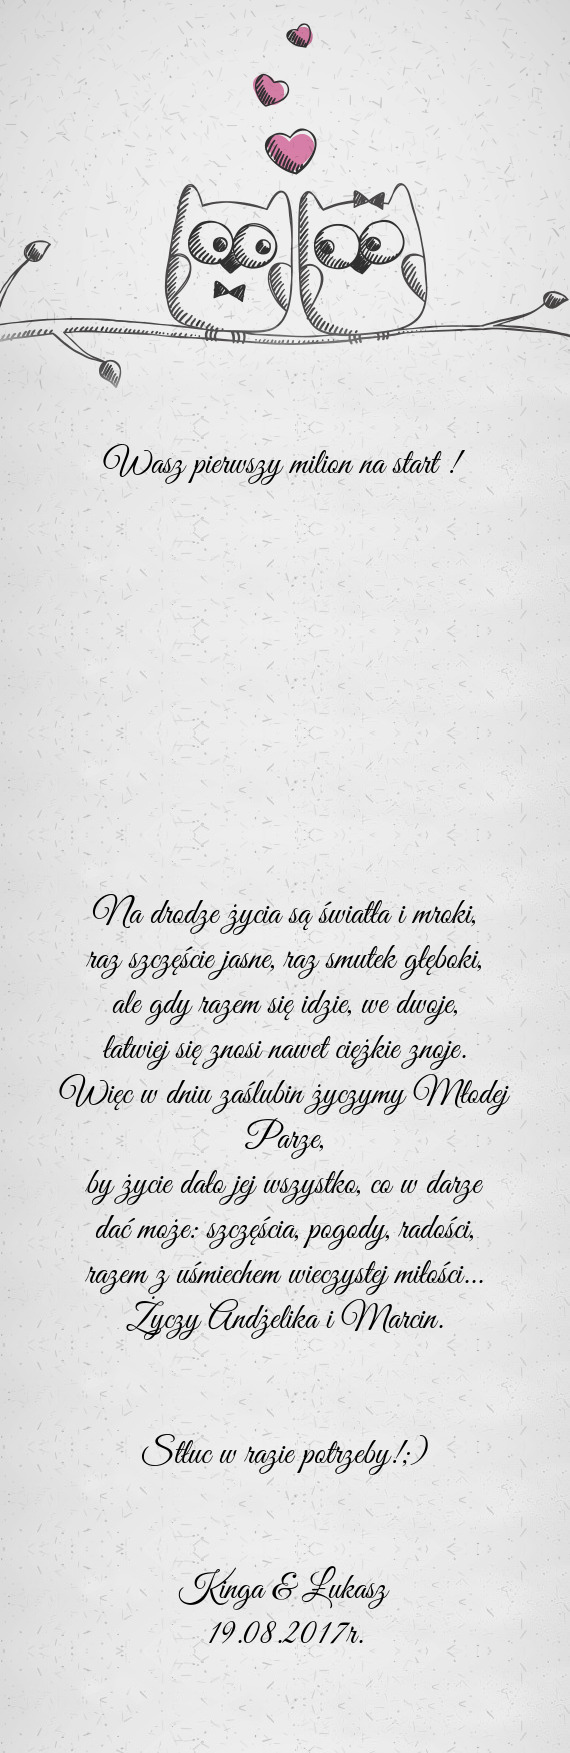 Wasz pierwszy milion na start !
Na drodze życia są światła i mroki,
raz szczęście jasne, raz smutek głęboki,
ale gdy razem się idzie, we dwoje,
łatwiej się znosi nawet ciężkie znoje.
Więc w dniu zaślubin życzymy Młodej
Parze,
by życie dało jej wszystko, co w darze
dać może: szczęścia, pogody, radości,
razem z uśmiechem wieczystej miłości...
Życzy Andżelika i Marcin.
Stłuc w razie potrzeby!;)
Kinga & Łukasz
19.08.2017r.